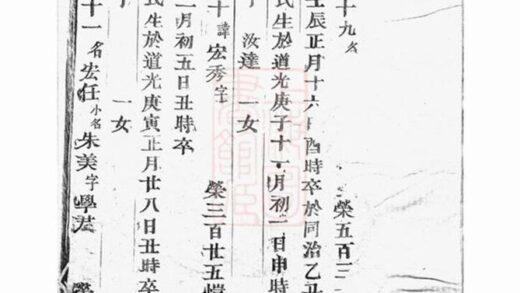 十九 名 榮五百三
壬辰正月十六日酉時卒於同治乙丑
氏生於道光庚子十一月初一日申時
汝達 一女
十 諱宏秀字 榮三百廿五愷
一月初五日丑時卒
氏生於道光庚寅正月廿八日丑時卒
一女
十一 名宏任小名朱美字學 榮